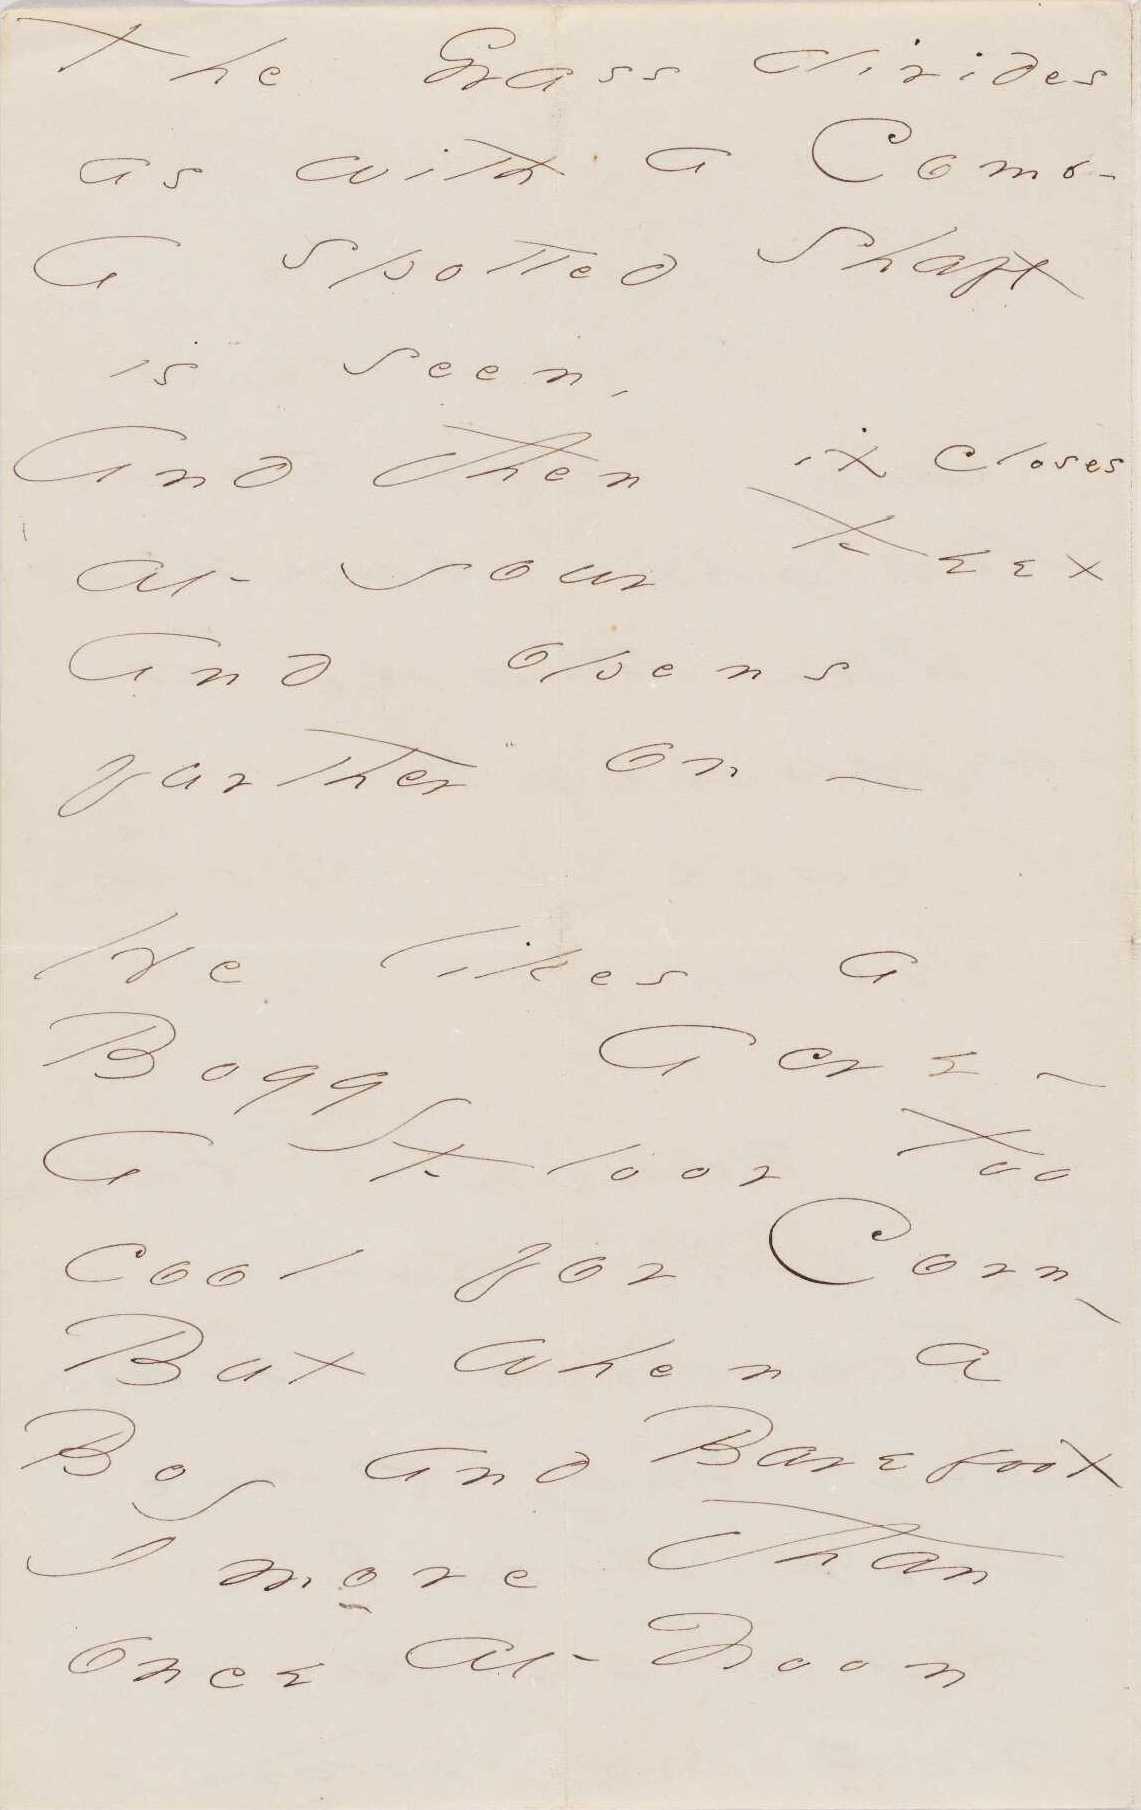 The Grass divides
as with a Comb -
A spotted Shaft
is seen,
And then it closes
at your Feet
And opens
further on -
He likes a
Boggy Acre -
A Floor too
cool for Corn -
But when a
Boy and Barefoot
I more than
once at Noon